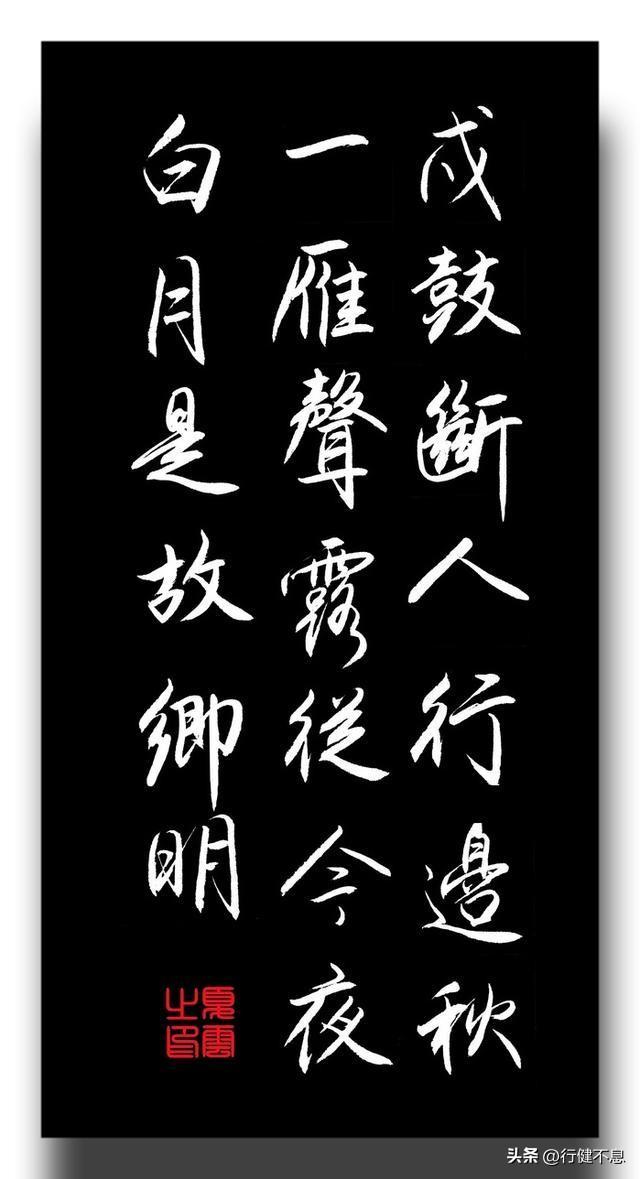 戍鼓斷人行邊秋
一雁聲露從今夜
白月是故鄉明
夏雲之印
头条 @行健不息